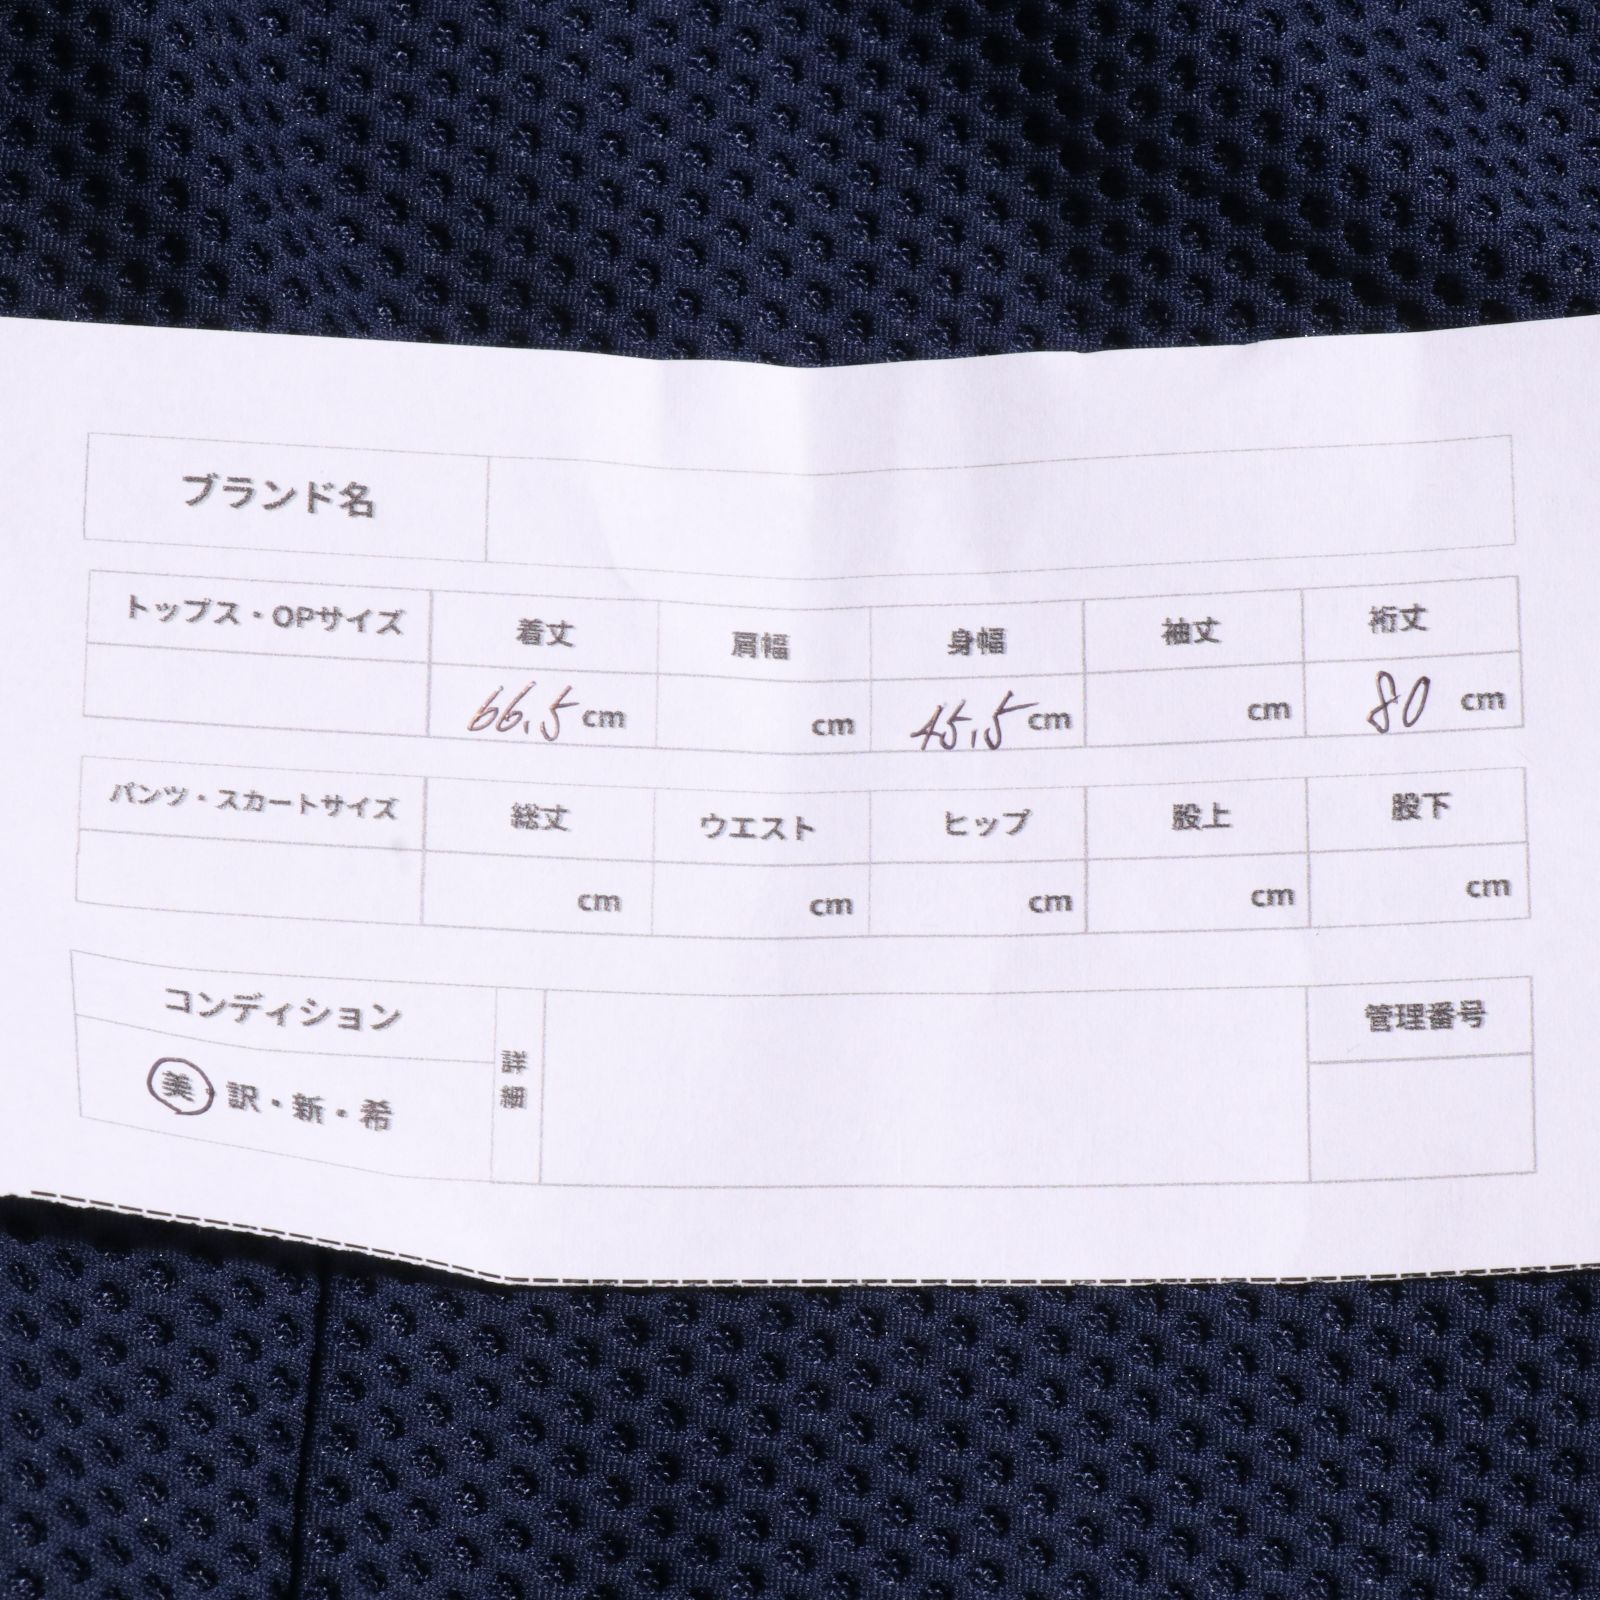 ブランド名
トップス・OPサイズ 着丈 肩幅 身幅 袖丈 裄丈
66.5 cm cm 45.5 cm cm 80 cm
パンツ・スカートサイズ 総丈 ウエスト ヒップ 股上 股下
cm cm cm cm cm
コンディション 詳細 管理番号
美・訳・新・希